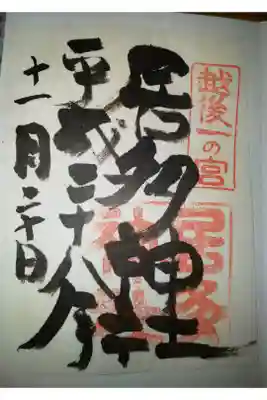 越後一の宮
居多神社
平成三十年
十一月二十日